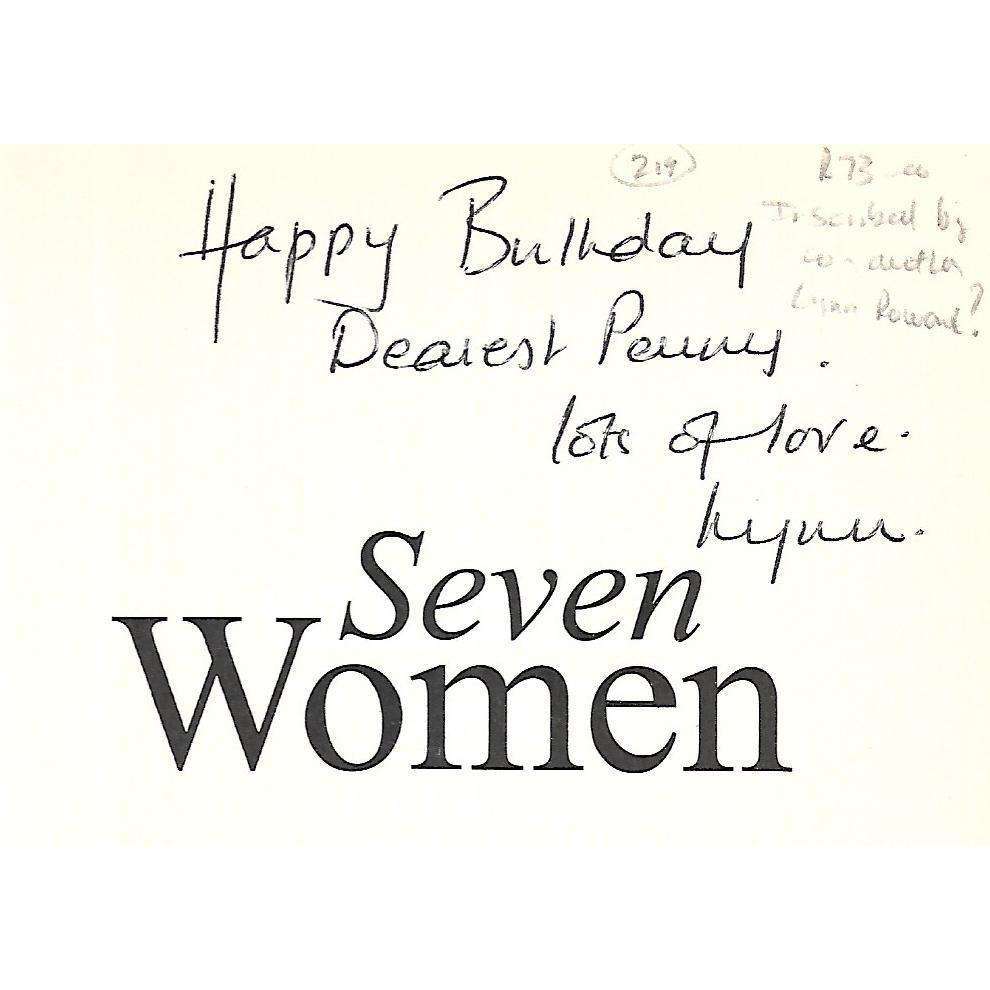 219
R73-00
Inscribed by
co-author
Lynn Rowand?
Happy Birthday
Dearest Penny.
lots of love.
Lynn.
Seven
Women